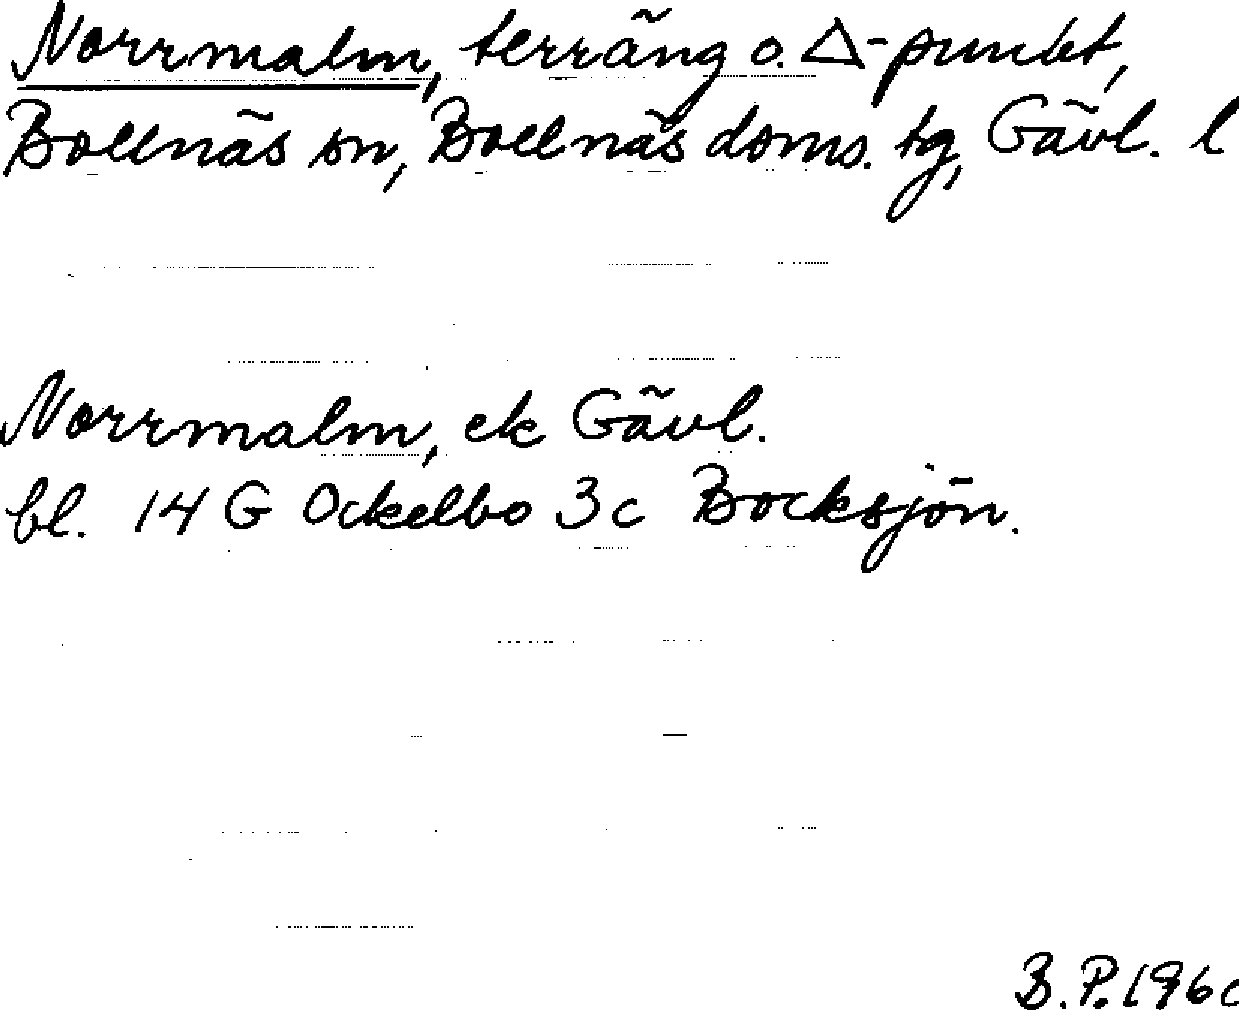 Norrmalm, terräng o. △-punkt,
Bollnäs sn, Bollnäs doms. tg, Gävl. l
Norrmalm, ek Gävl.
bl. 14 G Ockelbo 3c Bocksjön.
B.P. 196